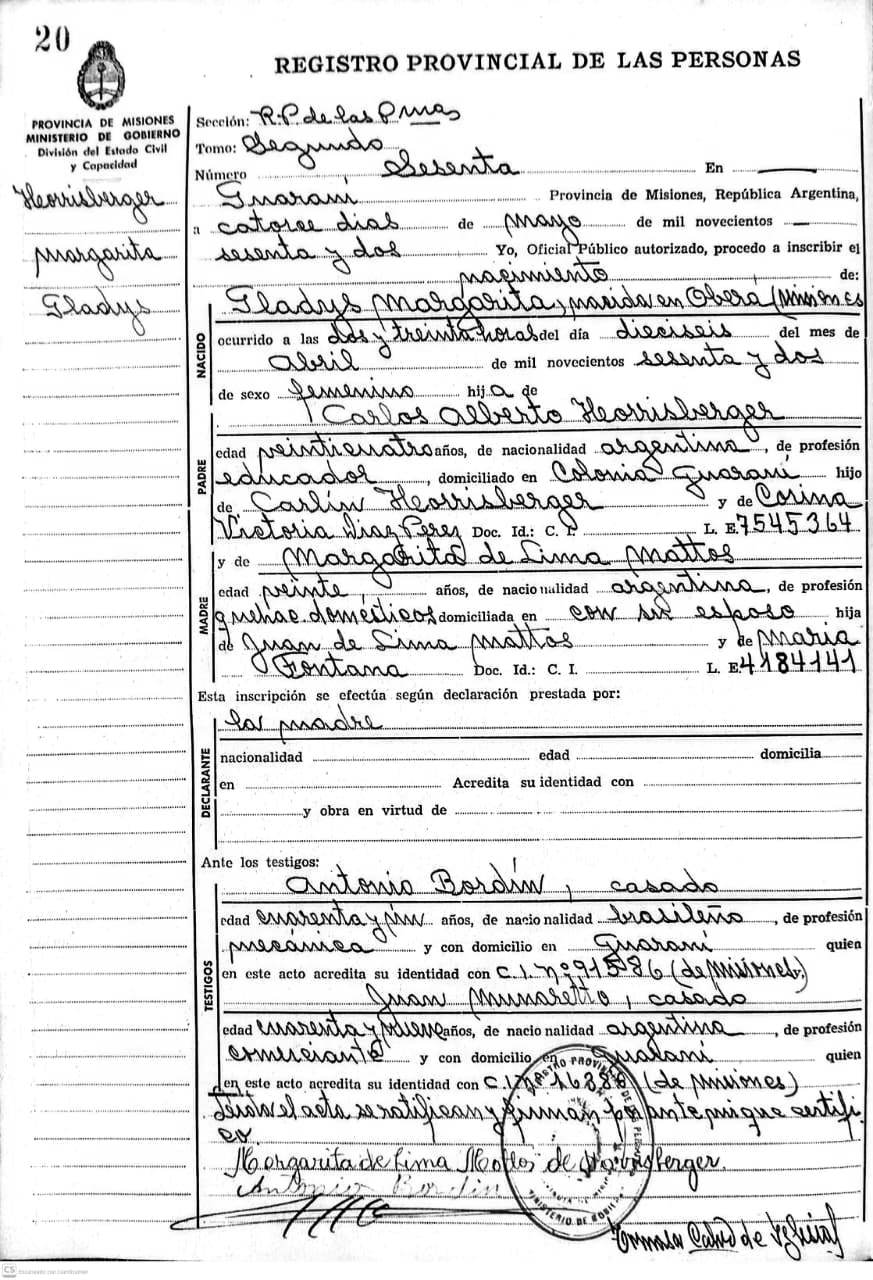 20
REGISTRO PROVINCIAL DE LAS PERSONAS
PROVINCIA DE MISIONES
MINISTERIO DE GOBIERNO
División del Estado Civil
y Capacidad
Horrisberger
Margarita
Gladys
Sección: R.P. de las Pnas
Tomo: Segundo
Número Sesenta En
Guaraní Provincia de Misiones, República Argentina,
a catorce dias de mayo de mil novecientos
sesenta y dos Yo, Oficial Público autorizado, procedo a inscribir el
nacimiento de:
NACIDO
Gladys Margarita, nacida en Oberá (Misiones
ocurrido a las dos y treinta horas del día dieciseis del mes de
Abril de mil novecientos sesenta y dos
de sexo femenino hija de
PADRE
Carlos Alberto Horrisberger
edad veinticuatro años, de nacionalidad argentina, de profesión
educador, domiciliado en Colonia Guaraní hijo
de Carlín Horrisberger y de Corina
Victoria Diaz Perez Doc. Id.: C. I. L. E. 7545364
MADRE
y de Margarita de Lima Mattos
edad veinte, años, de nacionalidad argentina, de profesión
quehac. domésticos domiciliada en con su esposo hija
de Juan de Lima Mattos y de Maria
Fontana Doc. Id.: C. I. L. E. 4184141
Esta inscripción se efectúa según declaración prestada por:
DECLARANTE
la madre
nacionalidad edad domicilia
en Acredita su identidad con
y obra en virtud de
Ante los testigos:
TESTIGOS
Antonio Bordín, casado
edad cuarenta y un años, de nacionalidad brasileño, de profesión
mecánica y con domicilio en Guaraní quien
en este acto acredita su identidad con C.I. nº 91586 (de Misiones)
Juan Munaretto, casado
edad cuarenta y nueve años, de nacionalidad argentina, de profesión
comerciante y con domicilio en Guaraní quien
en este acto acredita su identidad con C.I. (de Misiones)
el acta se ratifican y firman por ante mi que certifi
co
Margarita de Lima Mattos de Horrisberger.
Antonio Bordin
MINISTERIO DE GOBIERNO
Calvo de
CS Escaneado con CamScanner